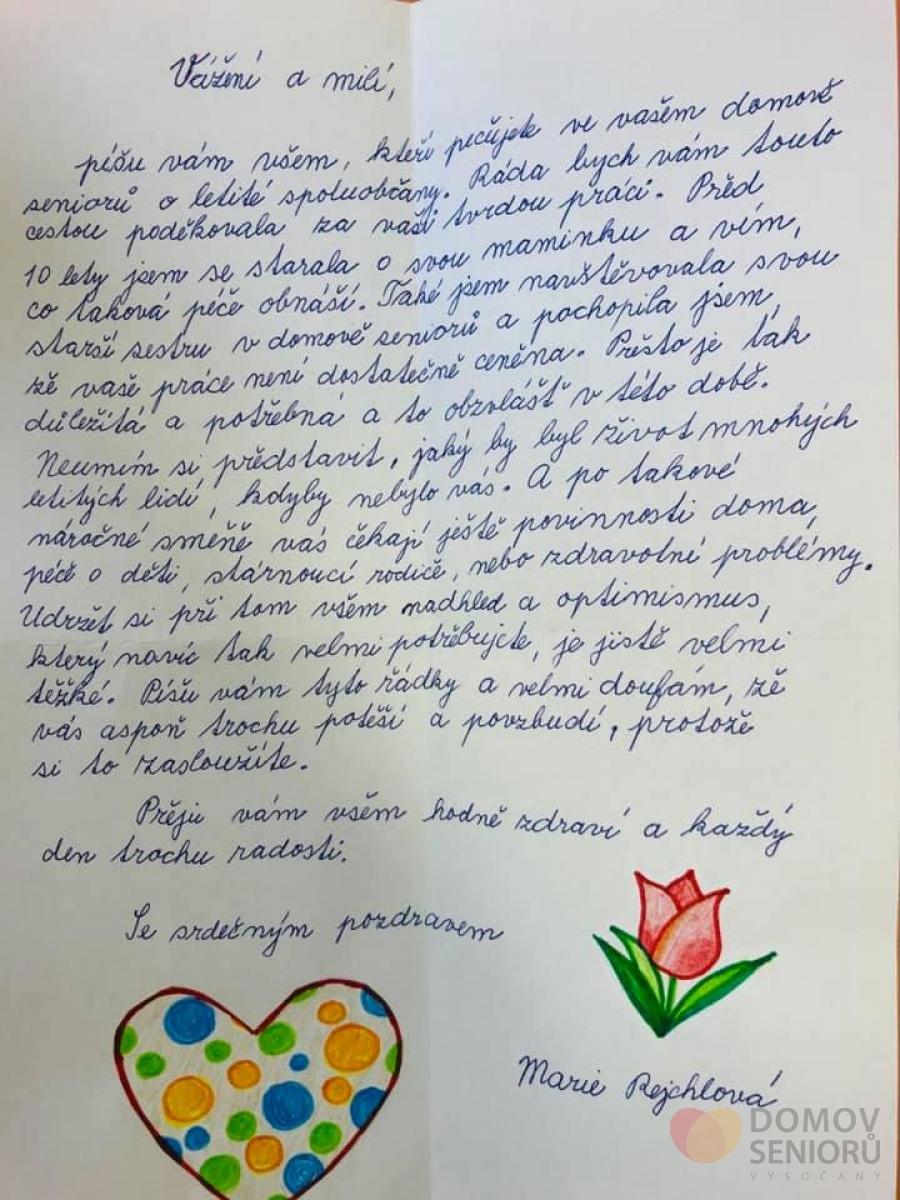 Vážení a milí,
píšu vám všem, kteří pečujete ve vašem domově
seniorů o letité spoluobčany. Ráda bych vám touto
cestou poděkovala za vaši tvrdou práci. Před
10 lety jsem se starala o svou maminku a vím,
co taková péče obnáší. Také jsem navštěvovala svou
starší sestru v domově seniorů a pochopila jsem,
že vaše práce není dostatečně ceněna. Přesto je tak
důležitá a potřebná a to obzvlášť v této době.
Neumím si představit, jaký by byl život mnohých
letitých lidí, kdyby nebylo vás. A po takové
náročné směně vás čekají ještě povinnosti doma,
péče o děti, stárnoucí rodiče, nebo zdravotní problémy.
Udržet si při tom všem nadhled a optimismus,
který navíc tak velmi potřebujete, je jistě velmi
těžké. Píšu vám tyto řádky a velmi doufám, že
vás aspoň trochu potěší a povzbudí, protože
si to zasloužíte.
Přeju vám všem hodně zdraví a každý
den trochu radosti.
Se srdečným pozdravem
Marie Rejchlová
DOMOV
SENIORŮ
VYSOČANY